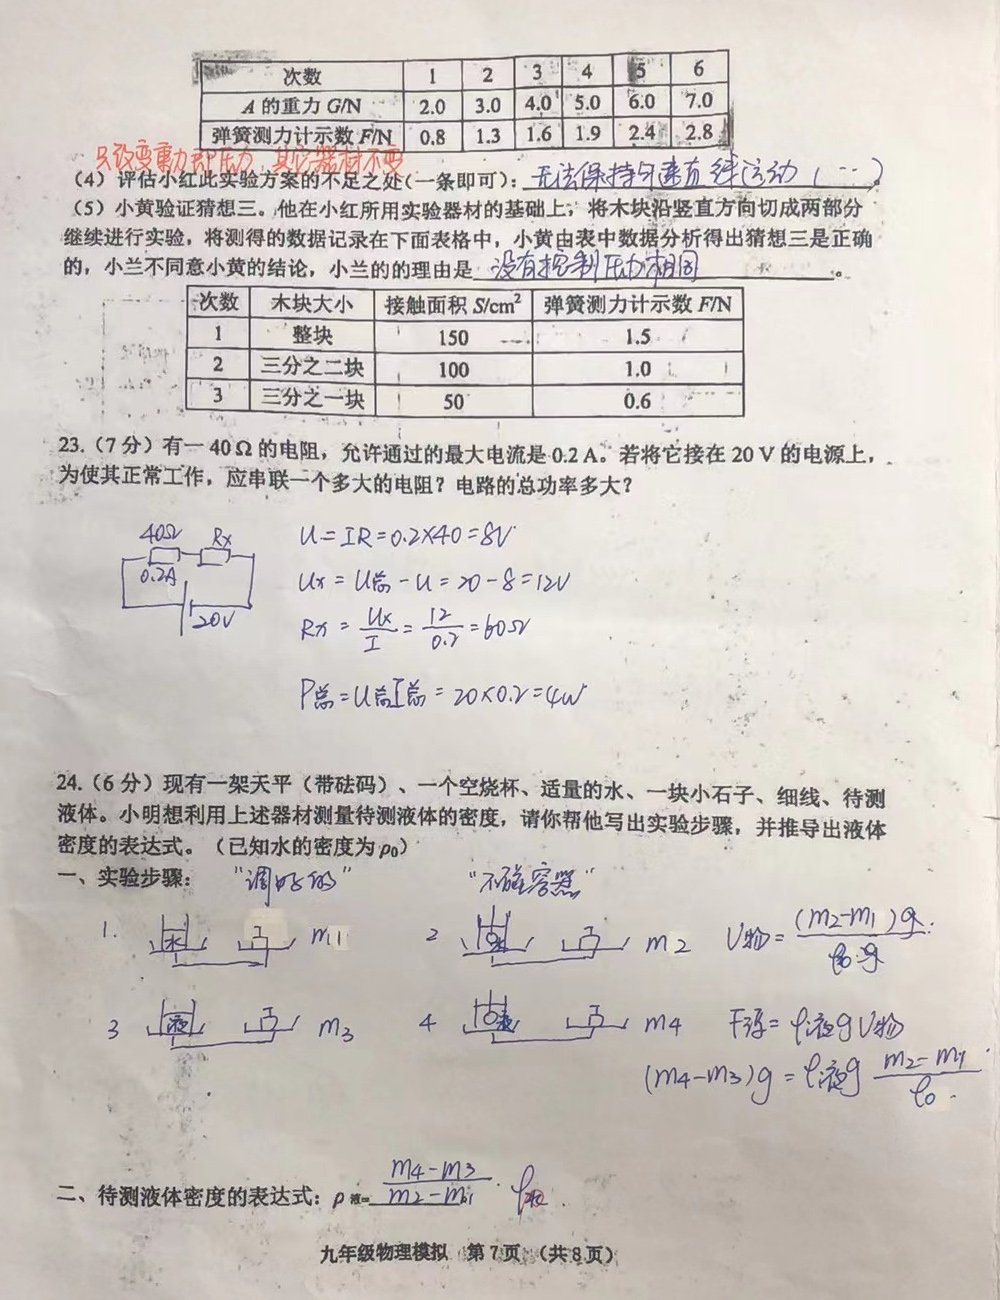 次数 1 2 3 4 5 6
A的重力G/N 2.0 3.0 4.0 5.0 6.0 7.0
弹簧测力计示数F/N 0.8 1.3 1.6 1.9 2.4 2.8
只改变重力即压力,其它器材不变
(4)评估小红此实验方案的不足之处(一条即可):无法保持匀速直线运动(…)
(5)小黄验证猜想三。他在小红所用实验器材的基础上,将木块沿竖直方向切成两部分
继续进行实验,将测得的数据记录在下面表格中,小黄由表中数据分析得出猜想三是正确
的,小兰不同意小黄的结论,小兰的的理由是 没有控制压力相同 。
次数 木块大小 接触面积S/cm² 弹簧测力计示数F/N
1 整块 150 1.5
2 三分之二块 100 1.0
3 三分之一块 50 0.6
23.(7分)有一40Ω的电阻,允许通过的最大电流是0.2A。若将它接在20V的电源上,
为使其正常工作,应串联一个多大的电阻?电路的总功率多大?
40Ω Rx
0.2A
20V
U=IR=0.2×40=8V
Ux=U总-U=20-8=12V
Rx=Ux/I=12/0.2=60Ω
P总=U总I总=20×0.2=4W
24.(6分)现有一架天平(带砝码)、一个空烧杯、适量的水、一块小石子、细线、待测
液体。小明想利用上述器材测量待测液体的密度,请你帮他写出实验步骤,并推导出液体
密度的表达式。(已知水的密度为ρ0)
一、实验步骤: “调好的” “不碰容器”
1. 水 m1 2 水 m2 V物=(m2-m1)g/ρ0·g
3 液 m3 4 液 m4 F浮=ρ液gV物
(m4-m3)g=ρ液g (m2-m1)/ρ0
二、待测液体密度的表达式:ρ液= (m4-m3)/(m2-m1) · ρ水
九年级物理模拟 第7页 (共8页)